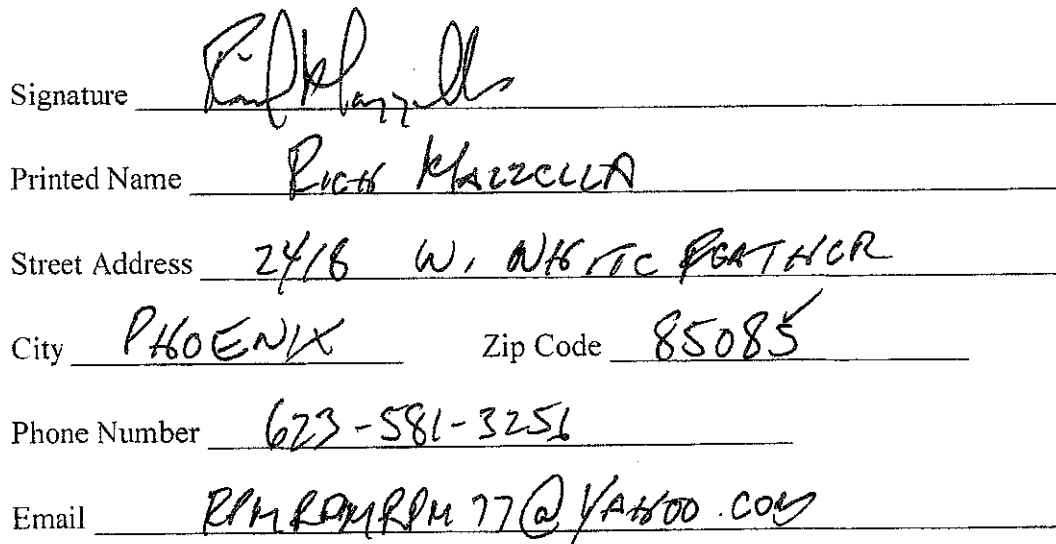 Signature Rich Mazzella
Printed Name RICH MAZZELLA
Street Address 2418 W. WHITE FEATHER
City PHOENIX Zip Code 85085
Phone Number 623-581-3251
Email RPMRPMRPM77@YAHOO.COM